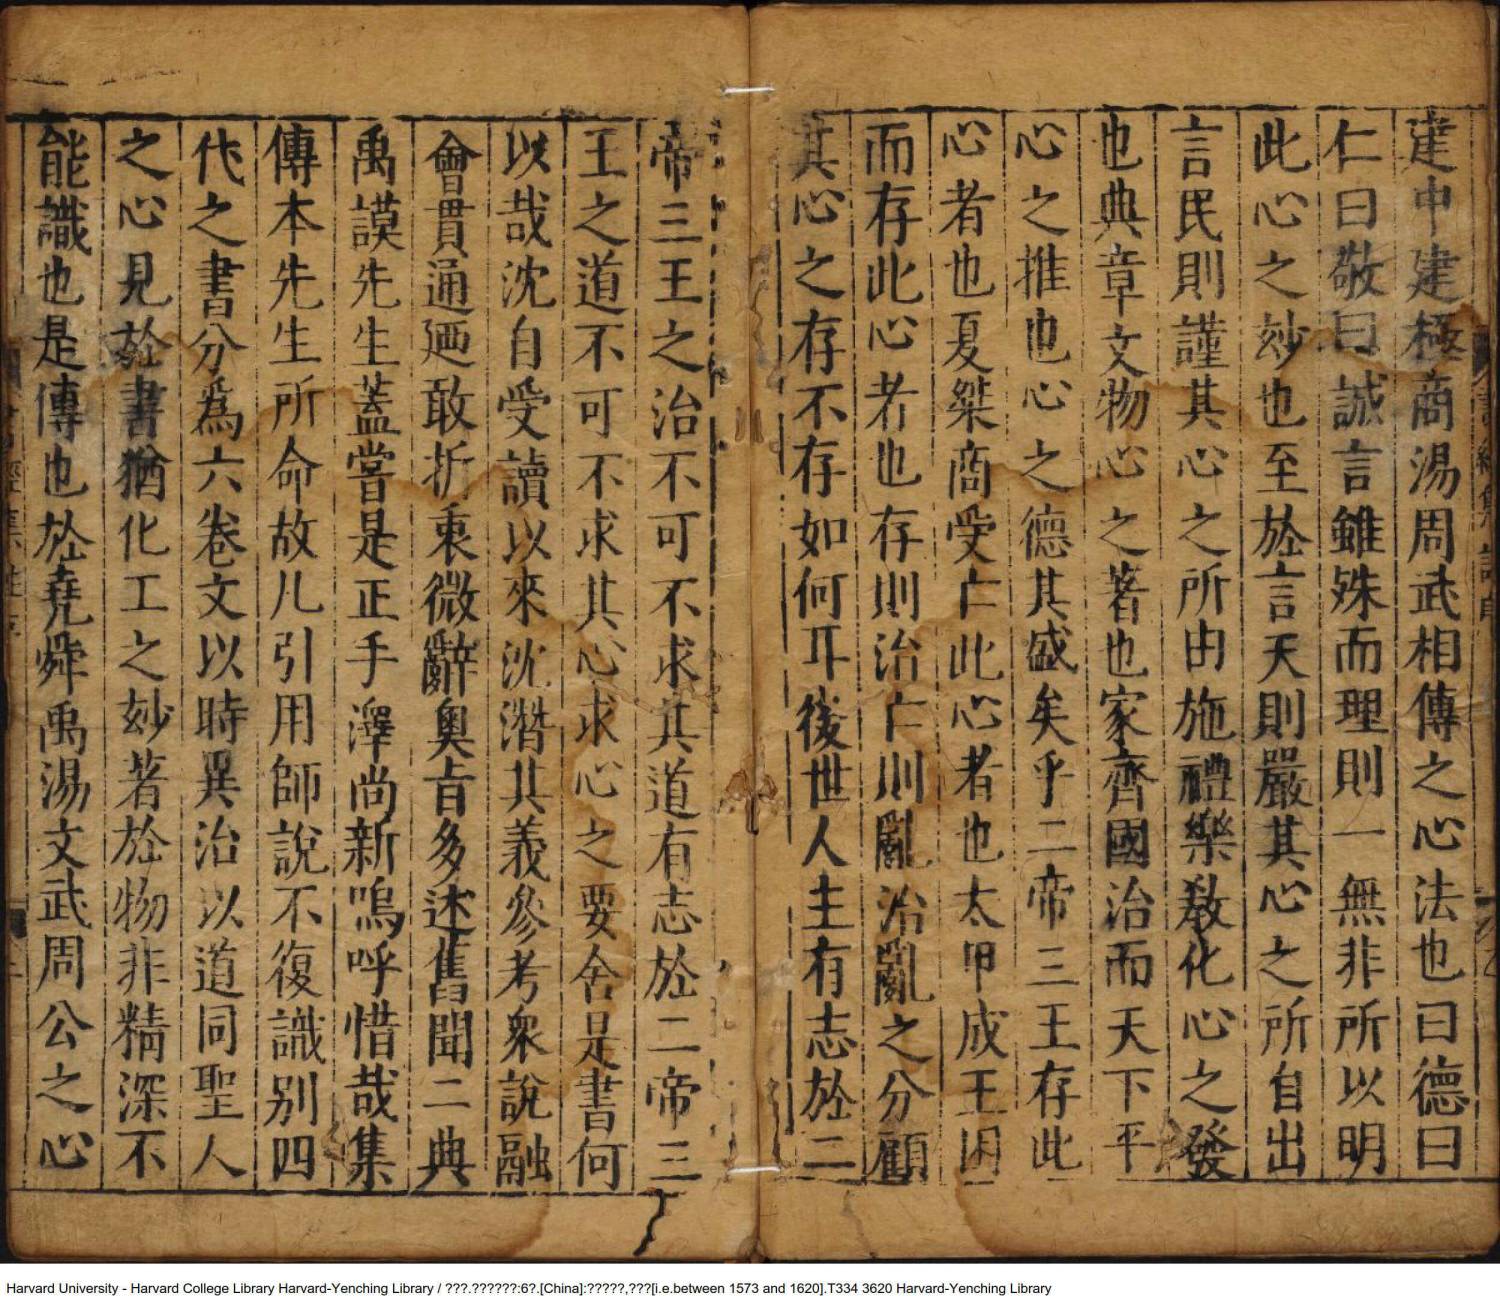 建中建極商湯周武相傳之心法也曰德曰
仁曰敬曰誠言雖殊而理則一無非所以明
此心之妙也至於言天則嚴其心之所自出
言民則謹其心之所由施禮樂教化心之發
也典章文物心之著也家齊國治而天下平
心之推也心之德其盛矣乎二帝三王存此
心者也夏桀商受亡此心者也太甲成王困
而存此心者也存則治亡則亂治亂之分顧
其心之存不存如何耳後世人主有志於二
帝三王之治不可不求其道有志於二帝三
王之道不可不求其心求心之要舍是書何
以哉沈自受讀以來沈潛其義參考衆說融
會貫通廼敢折衷微辭奧旨多述舊聞二典
禹謨先生蓋嘗是正手澤尚新嗚呼惜哉集
傳本先生所命故凡引用師說不復識別四
代之書分爲六卷文以時異治以道同聖人
之心見於書猶化工之妙著於物非精深不
能識也是傳也於堯舜禹湯文武周公之心
Harvard University - Harvard College Library Harvard-Yenching Library / ???.??????:6?.[China]:?????,???[i.e.between 1573 and 1620].T334 3620 Harvard-Yenching Library